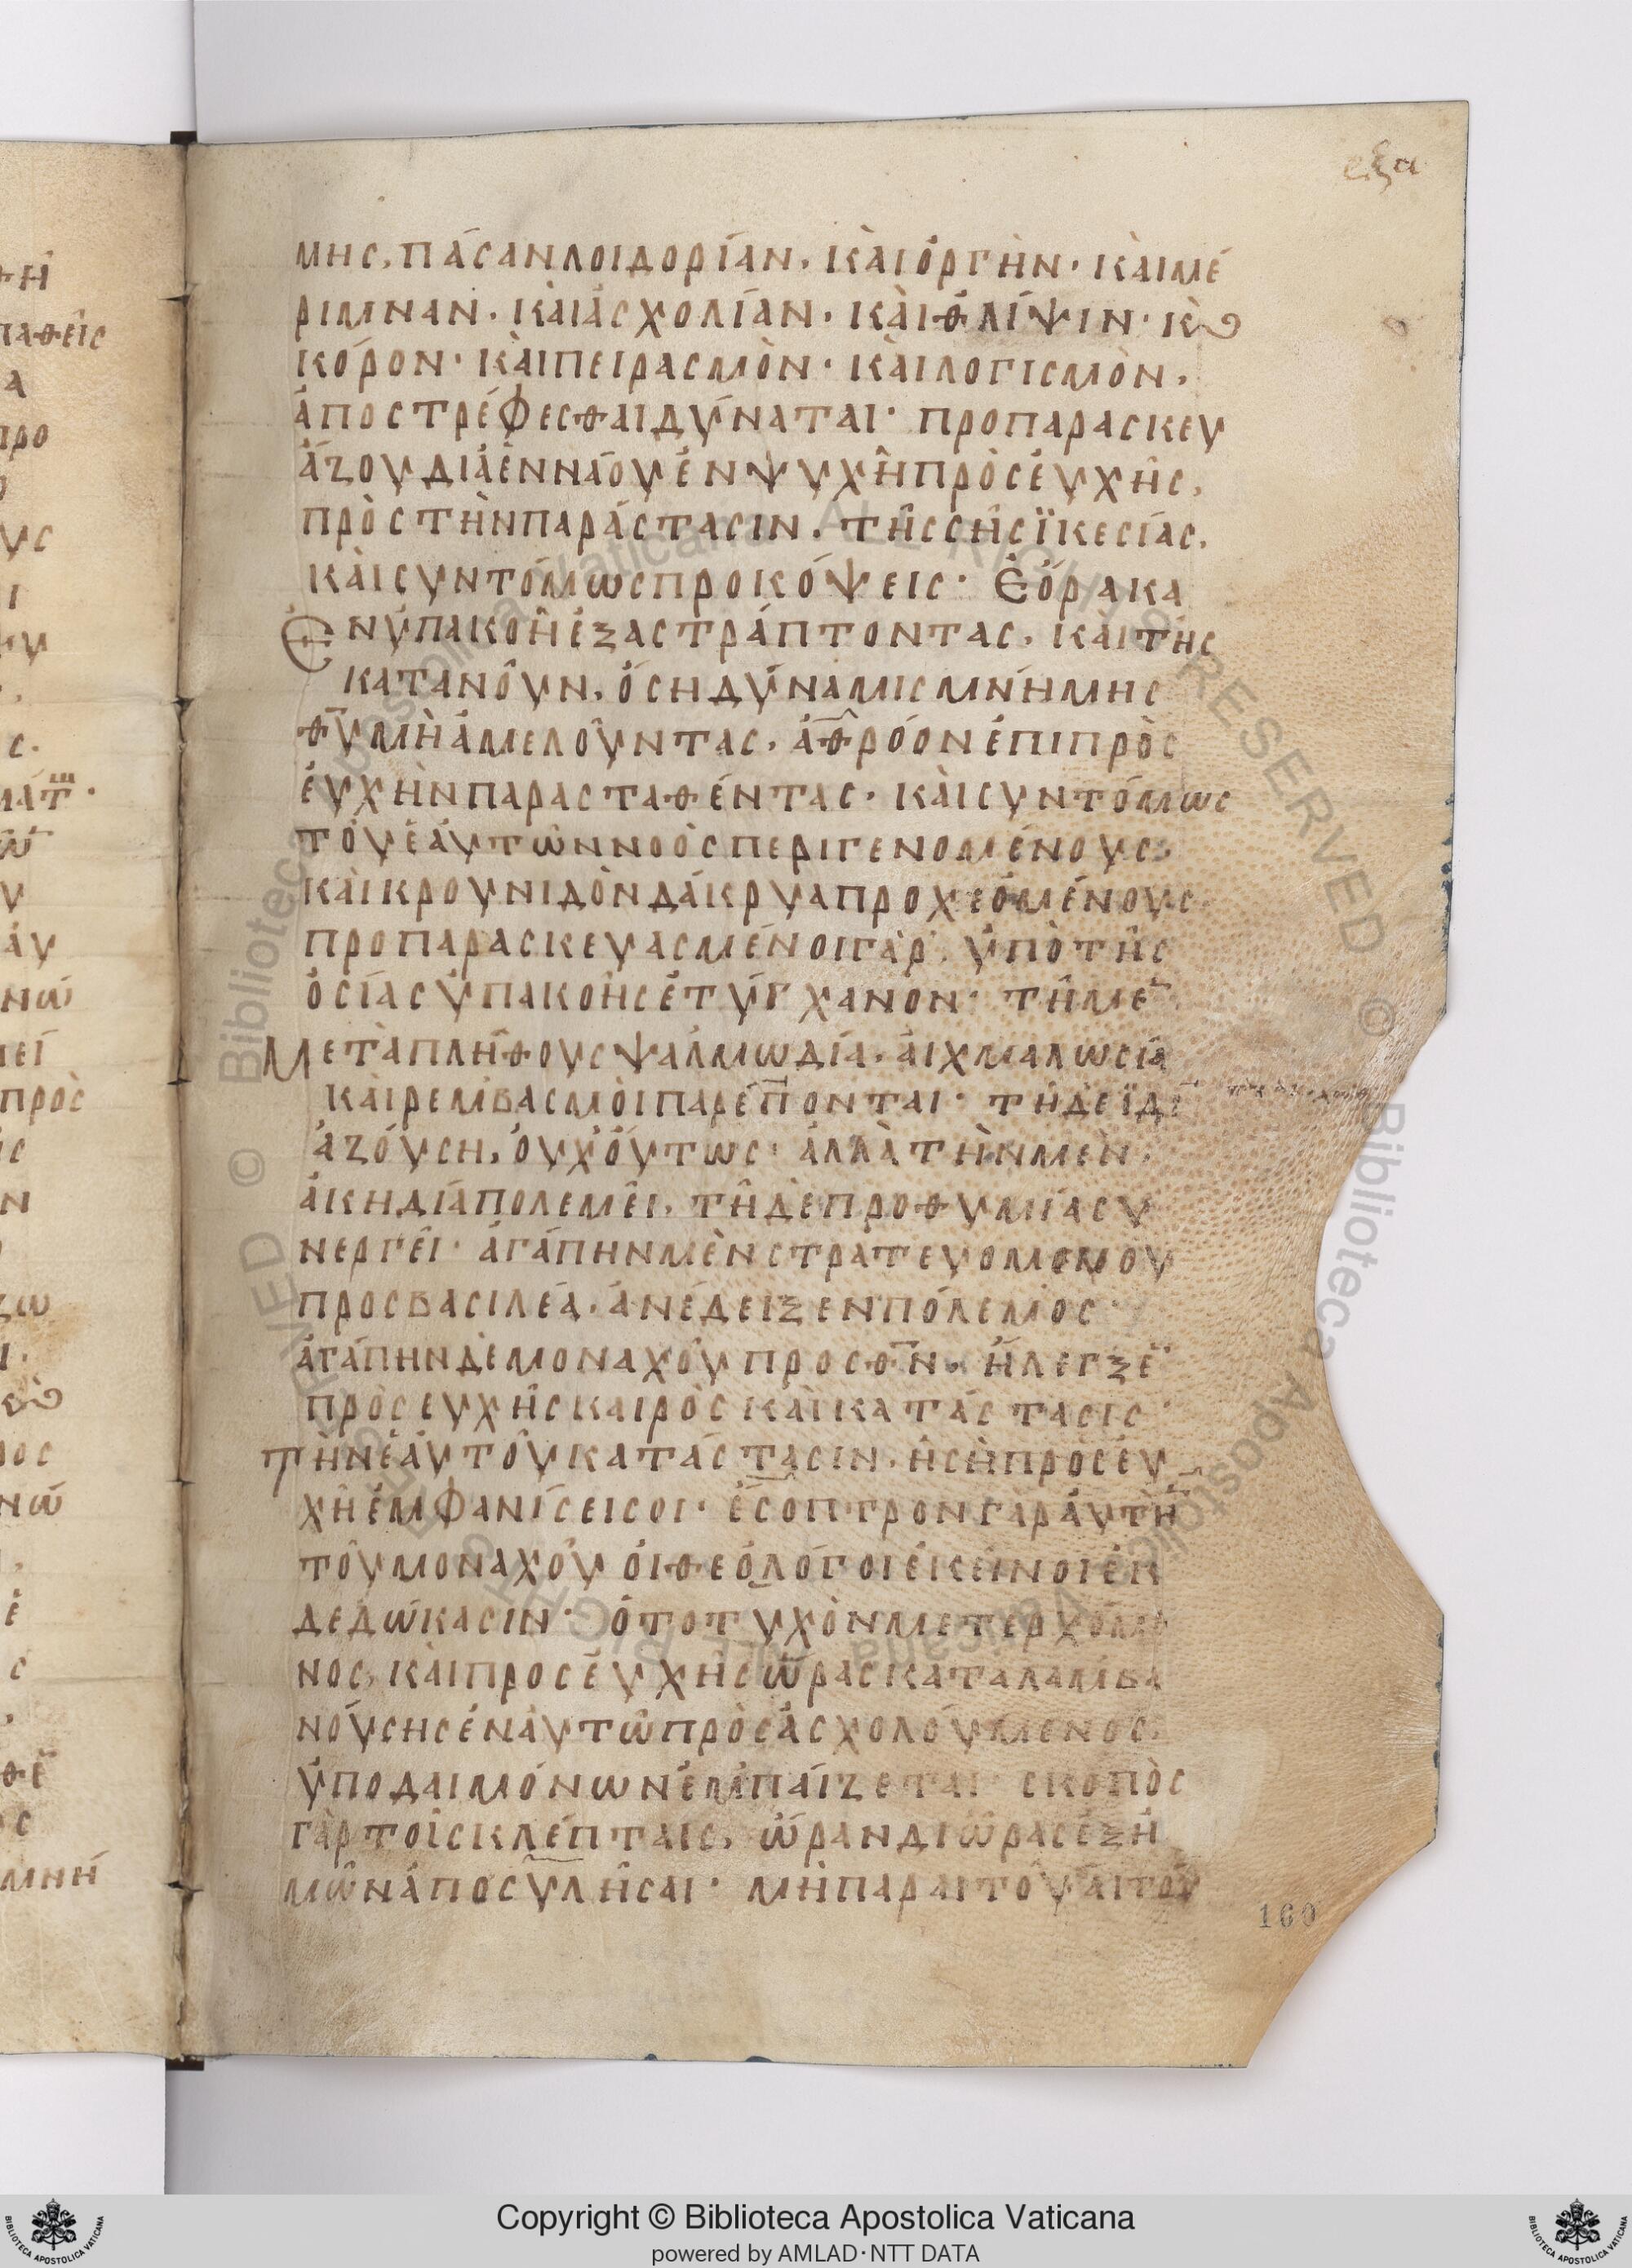 εξα
μης, πάσαν λοιδορίαν, κὰι ὀργὴν· κὰι μέ
ριμναν· κὰι ἀσχολίαν· κὰι θλίψιν· κ̀
κόρον· κὰι πειρασμὸν· κὰι λογισμὸν,
ἀποστρέφεσθαι δύναται· προπαρασκευ
άζου διὰ ἐννάου ἐν ψυχῆ πρὸσἐυχῆς,
πρὸς τὴν παράστασιν, τῆς σῆς ϊκεσίας,
κὰι συντόμως προκόψεις· Ἐόρακα
ἐν ὑπακοῆ ἐξαστράπτοντας, κὰι τῆς
κατανοῦν, ὅση δύναμις μνήμης
θυ μὴ ἀμελοῦντας, ἀθρόον ἐπι πρὸς
ἐυχὴν παρασταθέντας· κὰι συντόμως
τοῦ ἑάυτῶν νοὸς περιγενομένους
κὰι κρουνιδὸν δάκρυα προχεόμένους
προπαρασκευασμένοι γὰρ, ὑπὸ τῆς
ὁσίας ὑπακοῆς ἐτύγχανον· τῆ με
Μετὰ πλήθους ψαλμωδία, ἀιχμαλωσία
κὰι ρεμβασμὸι παρέπονται· τῆ δὲ ϊδι
ἀζόυση, ὀυχ ὅυτως· ἀλλὰ τὴν μὲν,
ἀκηδία πολεμεῖ, τῆ δὲ προθυμία συ
νεργεῖ· ἀγάπην μὲν στρατευομένου
προς βασιλέα, ἀνέδειξεν πόλεμος·
ἀγάπην δὲ μοναχοῦ προς θν, ἤλεγξε
πρὸσευχῆς καιρὸς κὰι κατάστασις·
τὴν ἑάυτοῦ κατάστασιν, ἡ σὴ πρὸσέυ
χὴ ἐμφανίσει σοι· ἔσοπτρον γὰρ ἀυτὴ
τοῦ μοναχοῦ ὁι θεόλόγοι ἐκεῖνοι ἐκ
δεδώκασιν· ὁ το τυχὸν μετερχόμε
νος, κὰι προσέυχης ὥρας καταλαμβα
νόυσης ἐν ἀυτῶ πρὸσἀσχολόυμενος,
ὑπο δαιμόνων ἐμπάιζεται· σκοπὸς
γὰρ τοῖς κλέπταις, ὥραν δι ὥρας ἐξ ἡ
μῶν ἀποσυλῆσαι· μὴ παραιτοῦ ἀιτού
160
Copyright © Biblioteca Apostolica Vaticana
powered by AMLAD·NTT DATA